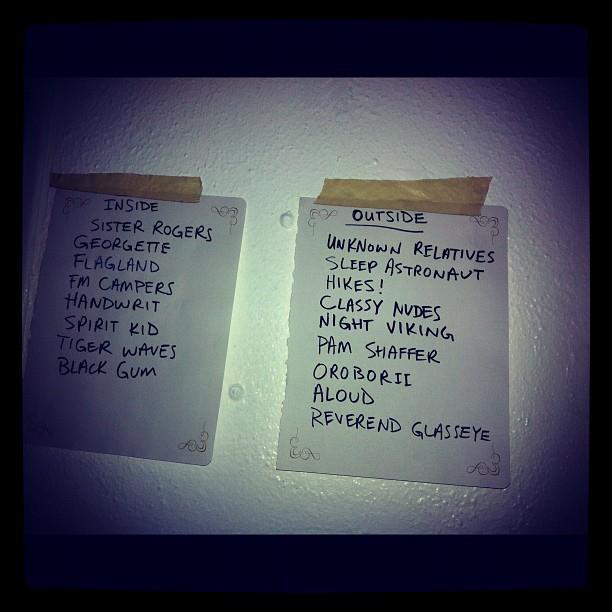 INSIDE
SISTER ROGERS
GEORGETTE
FLAGLAND
FM CAMPERS
HANDWRIT
SPIRIT KID
TIGER WAVES
BLACK GUM
OUTSIDE
UNKNOWN RELATIVES
SLEEP ASTRONAUT
HIKES!
CLASSY NUDES
NIGHT VIKING
PAM SHAFFER
OROBORII
ALOUD
REVEREND GLASSEYE